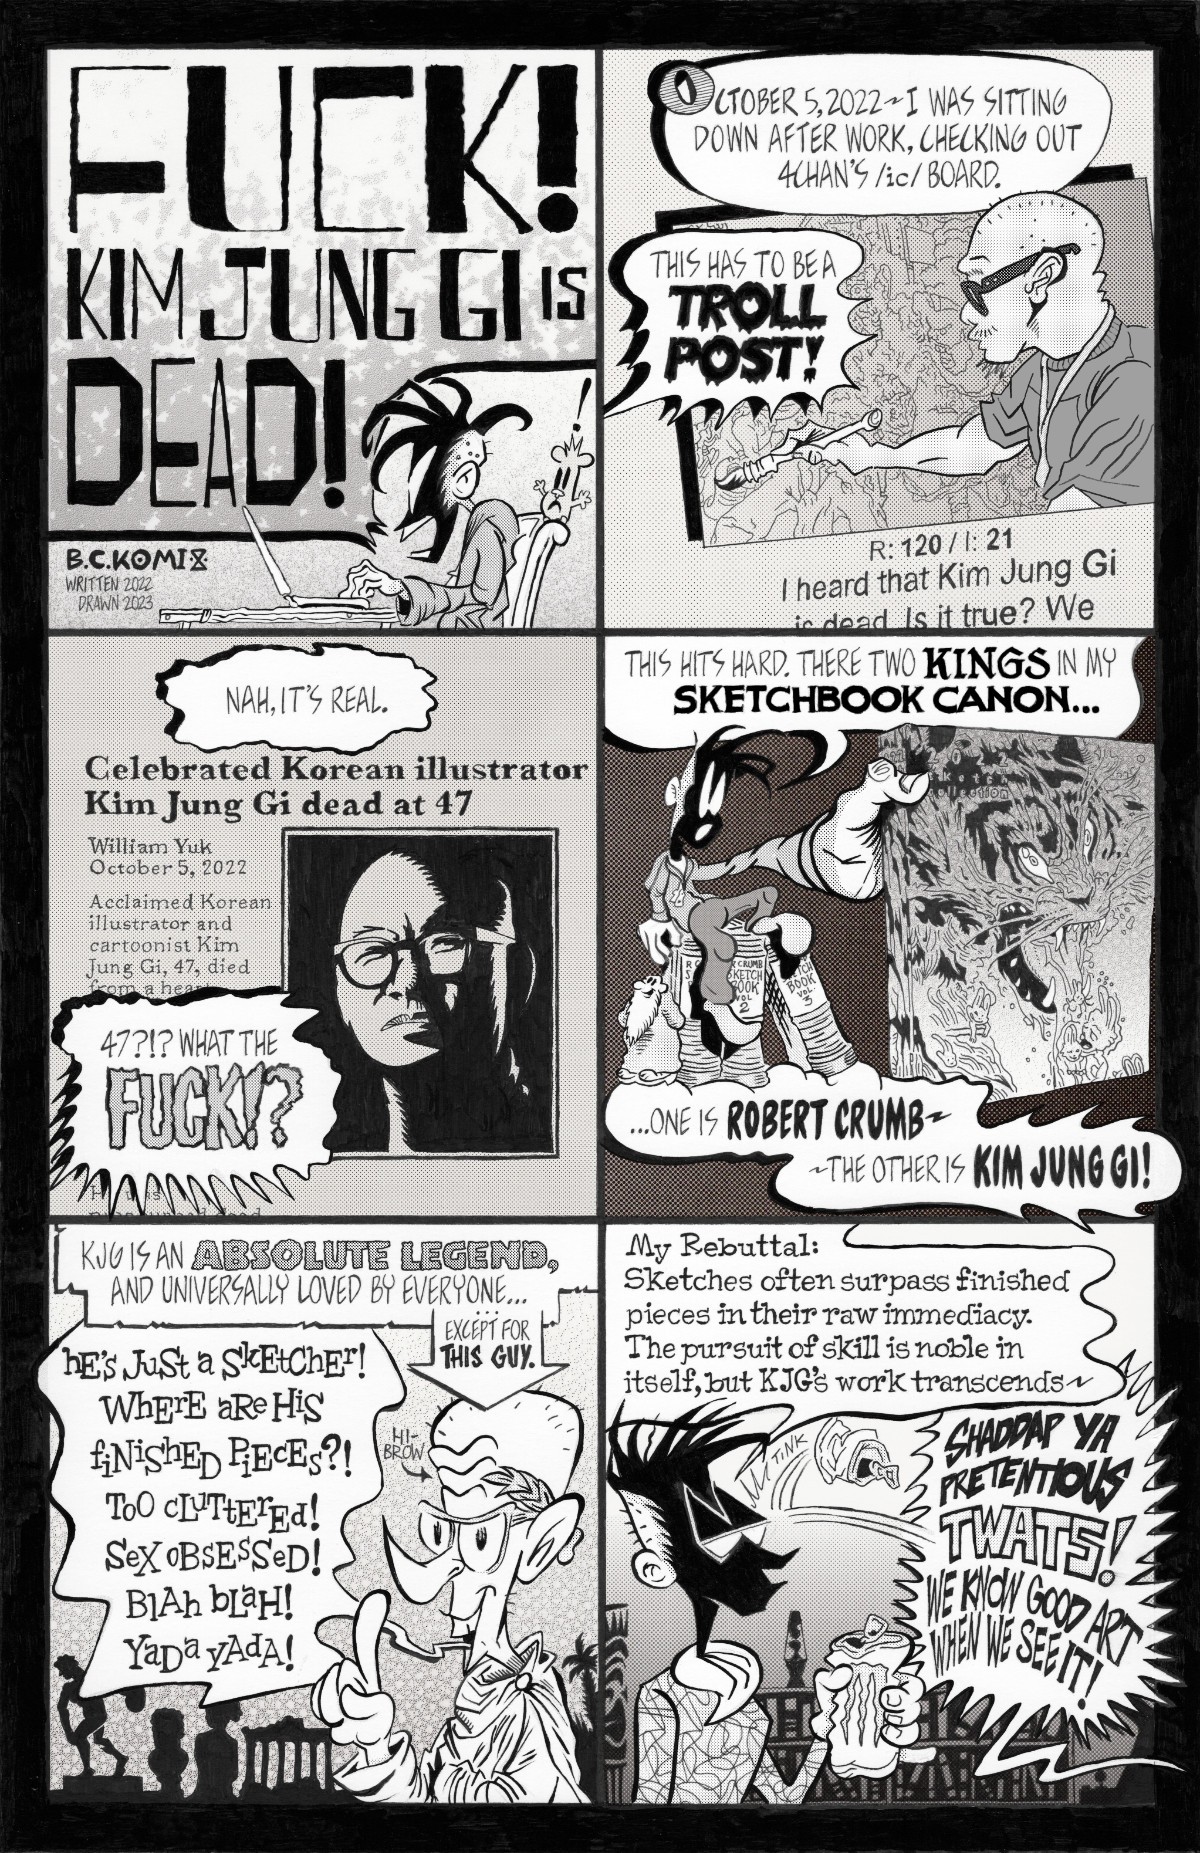 FUCK!
KIM JUNG GI IS
DEAD!
!
B.C.KOMIX
WRITTEN 2022
DRAWN 2023
OCTOBER 5, 2022~I WAS SITTING
DOWN AFTER WORK, CHECKING OUT
4CHAN'S /ic/ BOARD.
THIS HAS TO BE A
TROLL
POST!
R: 120 / I: 21
I heard that Kim Jung Gi
is dead. Is it true? We
NAH, IT'S REAL.
Celebrated Korean illustrator
Kim Jung Gi dead at 47
William Yuk
October 5, 2022
Acclaimed Korean
illustrator and
cartoonist Kim
Jung Gi, 47, died
from a hear
47?!? WHAT THE
FUCK!?
THIS HITS HARD. THERE TWO KINGS IN MY
SKETCHBOOK CANON...
CRUMB
SKETCH
BOOK
VOL
2
BOOK
VOL
3
...ONE IS ROBERT CRUMB~
~THE OTHER IS KIM JUNG GI!
KJG IS AN ABSOLUTE LEGEND,
AND UNIVERSALLY LOVED BY EVERYONE...
...
EXCEPT FOR
THIS GUY.
hE's JuSt a SkEtCher!
WhErE aRe HiS
fiNiShED PiEcEs?!
ToO cLuTtErEd!
SeX oBsEsSeD!
BlAh bLaH!
YaDa yAdA!
HI-
BROW
My Rebuttal:
Sketches often surpass finished
pieces in their raw immediacy.
The pursuit of skill is noble in
itself, but KJG's work transcends~
TINK
SHADDAP YA
PRETENTIOUS
TWATS!
WE KNOW GOOD ART
WHEN WE SEE IT!